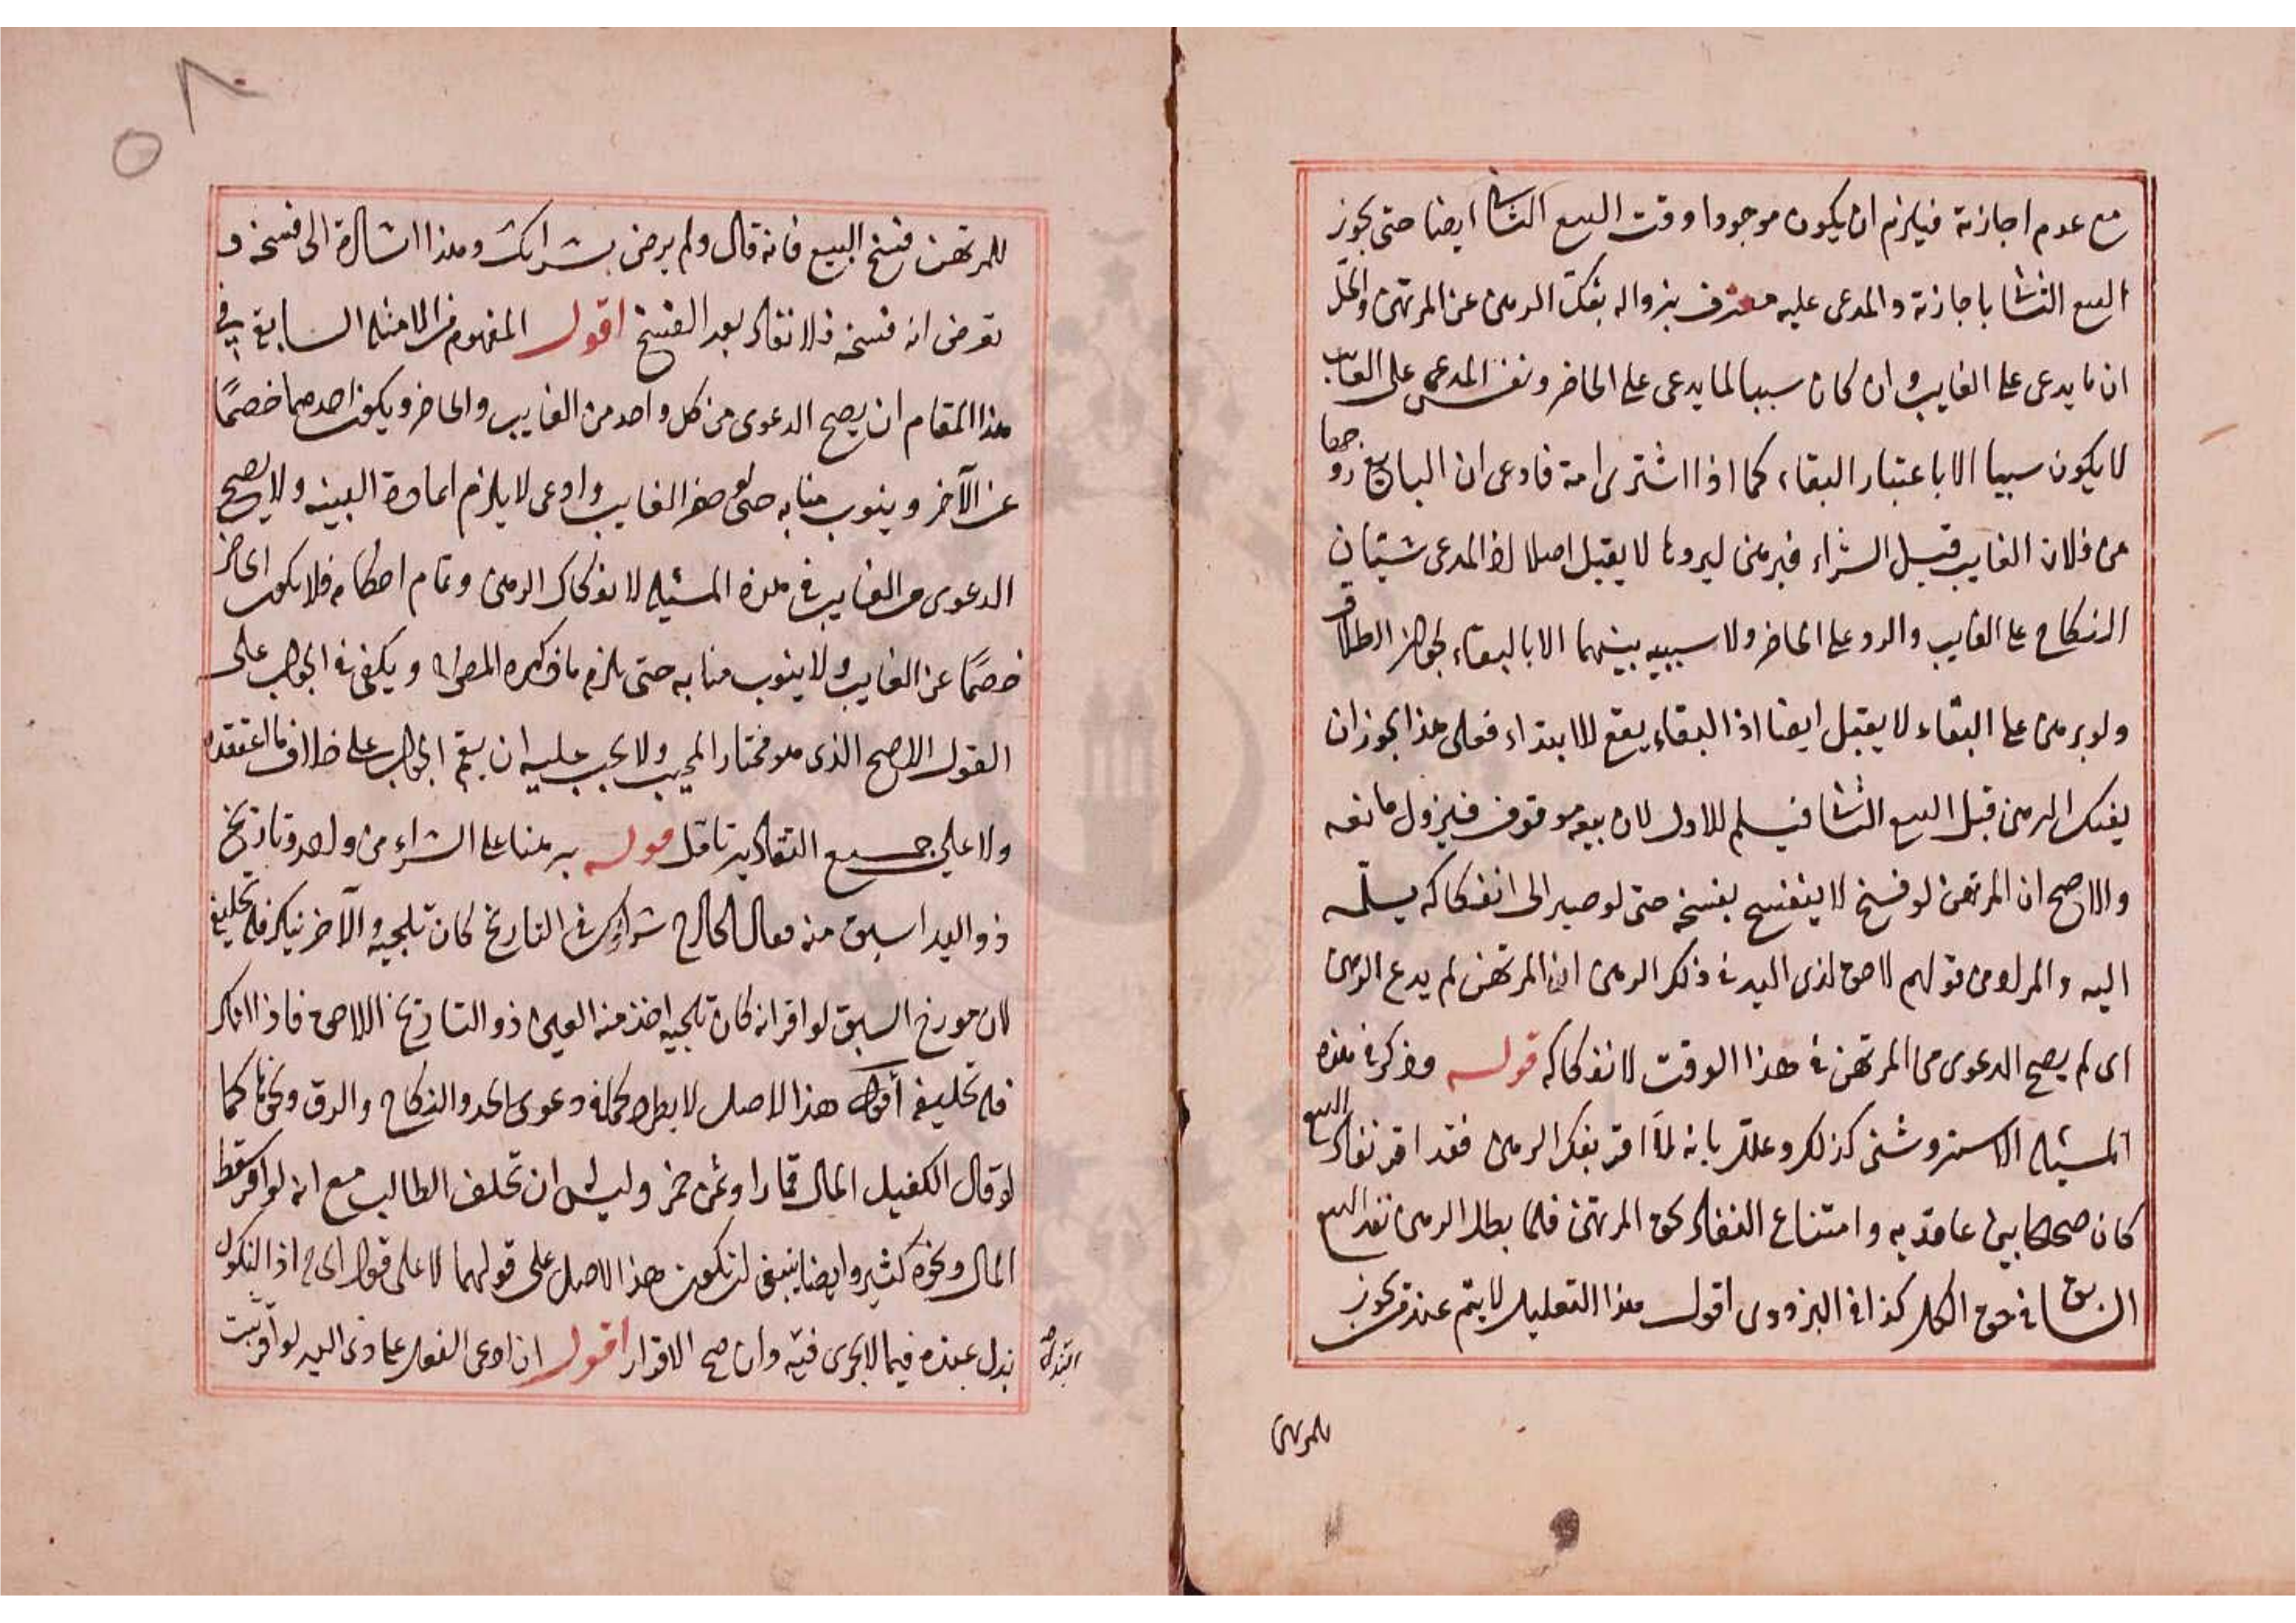 مع عدم اجازته فيلزم ان يكون موجودا وقت البيع الثانى ايضا حتى يجوز
البيع الثانى باجازته والمدعى عليه معترف بزواله بفك الرهن عن المرتهن والحل
ان ما يدعى على الغايب وان كان سببا لما يدعى على الحاضر ونفس المدعى على الغايب
لا يكون سببا الا باعتبار البقاء كما اذا اشترى امة فادعى ان البايع زوجها
من فلان الغايب قبل الشراء فبرهن ليردها لا يقبل اصلا لان المدعى شيئان
النكاح على الغايب والرد على الحاضر ولا سببيه بينهما الا بالبقاء لجواز الطلاق
ولو برهن على البقاء لا يقبل ايضا اذ البقاء يقع للابتداء فعلى هذا يجوز ان
يفتك الرهن قبل البيع الثانى فيسلم للاول لان بيعه موقوف فيزول مانعه
والاصح ان المرتهن لو فسخ لا ينفسخ بفسخه حتى لو صبر الى انفكاكه يسلمه
اليه والمراد من قولهم لا حق لذى اليد فى ذلك الرهن ان المرتهن لم يدع الرهن
اى لم يصح الدعوى من المرتهن فى هذا الوقت لانفكاكه قوله وذكر فى هذه
المسئله الاستروشنى كذلك وعلله بانه لما اقر بفك الرهن فقد اقر نفاذ البيع
كان صحيحا بين عاقديه وامتناع النفاذ لحق المرتهن فلما بطل الرهن نفذ البيع
السابق فى حق الكل كذا فى البزدوى اقول هذا التعليل لا يتم عند من يجوز
للمرتهن
للمرتهن فسخ البيع فانه قال ولم يرض بشرائك وهذا اشارة الى فسخه و
نفرض انه فسخه فلا نفاذ بعد الفسخ اقول المفهوم من الامثله السابقة فى
هذا المقام ان يصح الدعوى من كل واحد من الغايب والحاضر ويكون احدهما خصمًا
عن الآخر وينوب منابه حتى لو حضر الغايب وادعى لا يلزم اعادة البينه ولا يصح
الدعوى من الغايب فى هذه المسئله لانفكاك الرهن وتمام احكامه فلا يكون الحاضر
خصمًا عن الغايب ولا ينوب منابه حتى يلزم ما ذكره المص ويكفى فى الجواب على
القول الاصح الذى هو مختار المجيب ولا يجب عليه ان يقيم الجواب على خلاف ما اعتقده
ولا على جميع التقادير تامل قوله برهنا على الشراء من واحد وتاريخ
ذو اليد اسبق منه فقال الخارج شراؤك فى التاريخ كان تلجيه والآخر ينكر فله تحليفه
لان مورخ السبق لو اقر انه كان تلجيه اخذ منه العين ذو التاريخ اللاحق فاذا انكر
فله تحليفه أقول هذا الاصل لا يطرد كمسئلة دعوى الحد والنكاح والرق ونحوها كما
لو قال الكفيل المال قمارا وثمن خمر وليس له ان يحلف الطالب مع انه لو اقر سقط
المال ونحوه كثير وايضا ينبغى ان يكون هذا الاصل على قولهما لا على قول ابى ح اذ النكول
بذل عنده فيما لا يجرى فيه وان صح الاقرار اقول ان ادعى الفعل على ذى اليد لو اقر بيت